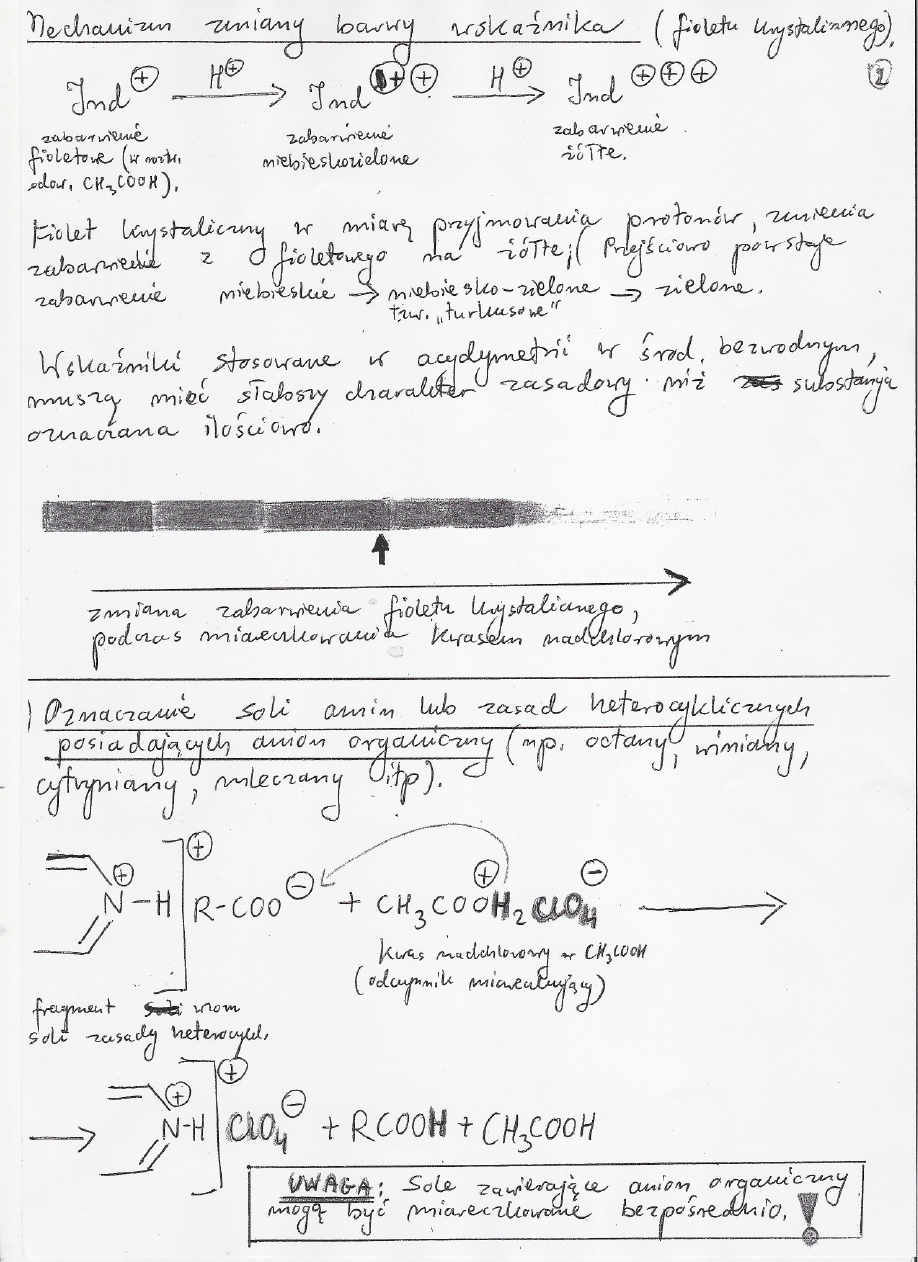 Mechanizm zmiany barwy wskaźnika (fioletu krystalicznego).
2
Ind⊕ —H⊕→ Ind⊕⊕ —H⊕→ Ind⊕⊕⊕
zabarwienie zabarwienie zabarwienie
fioletowe (w roztw. niebieskozielone żółte.
odcw. CH₃COOH).
Fiolet krystaliczny w miarę przyjmowania protonów, zmienia
zabarwienie z fioletowego na żółte; (Przejściowo powstaje
zabarwienie niebieskie → niebiesko-zielone → zielone.
tzw. „turkusowe"
Wskaźniki stosowane w acydymetrii w środ. bezwodnym,
muszą mieć słabszy charakter zasadowy niż substancja
oznaczana ilościowo.
zmiana zabarwienia fioletu krystalicznego,
podczas miareczkowania kwasem nadchlorowym
) Oznaczanie soli amin lub zasad heterocyklicznych
posiadających anion organiczny (np. octany, winiany,
cytryniany, mleczany itp).
N⊕–H]⊕ R–COO⊖ + CH₃COO⊕H₂ ClO₄⊖ →
kwas nadchlorowy w CH₃COOH
(odczynnik miareczkujący)
fragment
soli zasady heterocykl.
→ N⊕–H]⊕ ClO₄⊖ + RCOOH + CH₃COOH
UWAGA: Sole zawierające anion organiczny
mogą być miareczkowane bezpośrednio. !